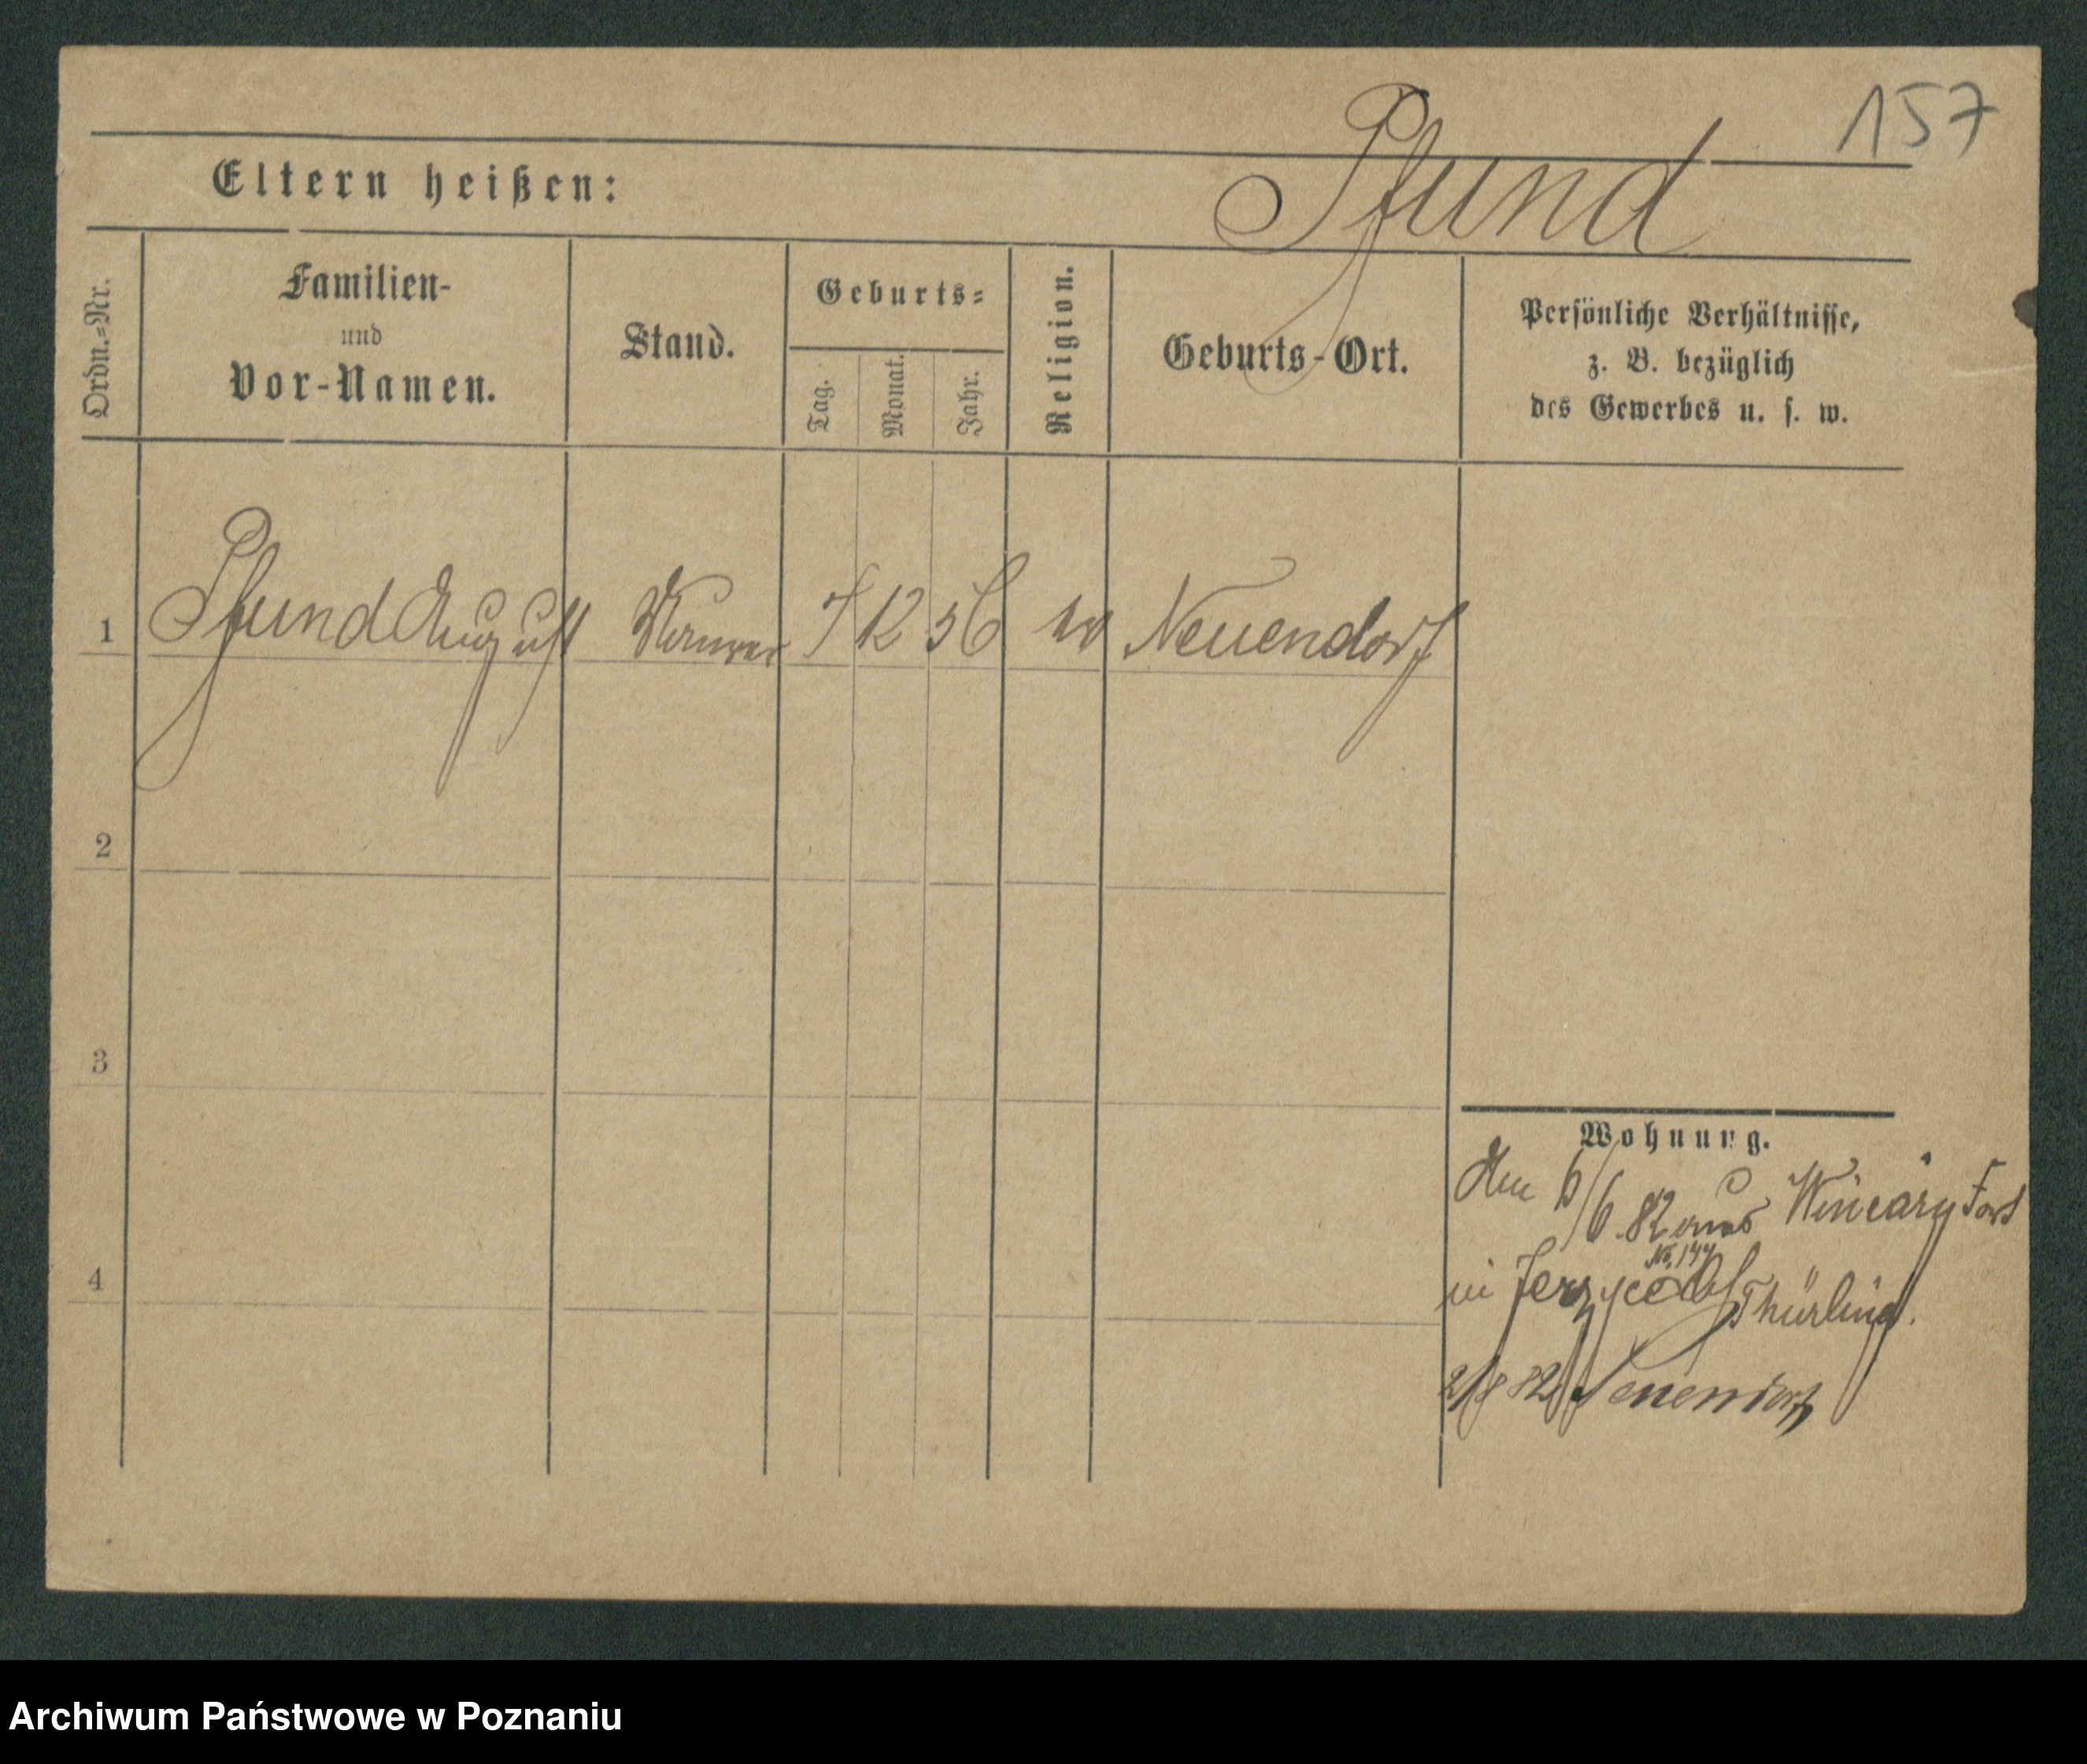 157
Pfund
Eltern heißen:
Ordn.-Nr.
Familien-
und
Vor-Namen.
Stand.
Geburts-
Tag.
Monat.
Jahr.
Religion.
Geburts-Ort.
Persönliche Verhältnisse,
z. B. bezüglich
des Gewerbes u. s. w.
1 Pfund August 7 12 56 ev Neuendorf
2
3
4
Wohnung.
6/6 82 aus Winiary Fort
in Jerzyce
No. 144
Thürling.
2/8 82 Neuendorf
Archiwum Państwowe w Poznaniu